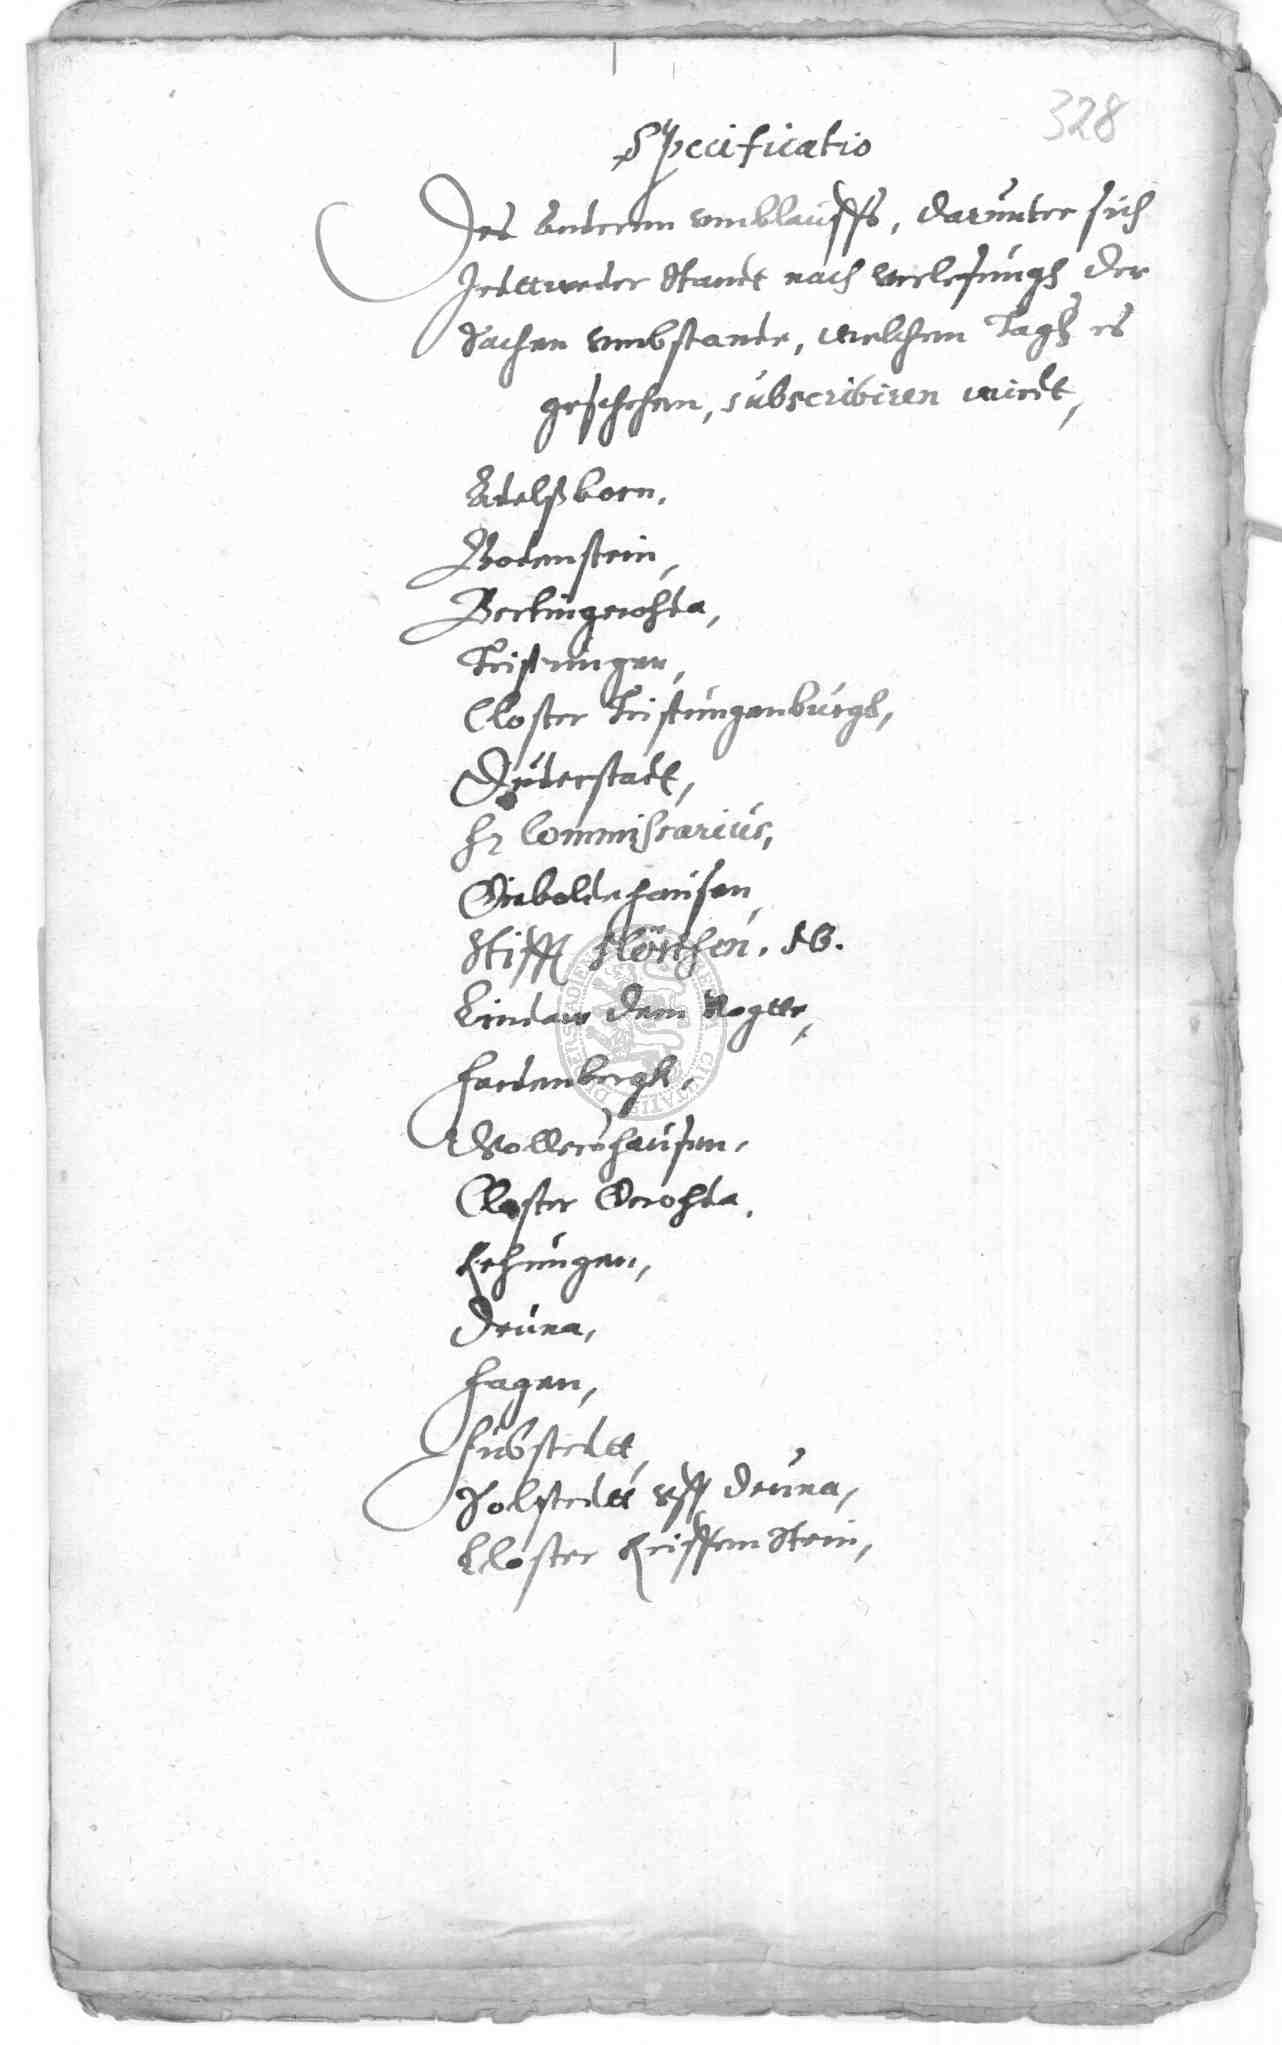 328
Specificatio
Des Anderen umblauffs, darunter sich
Jedttweder Standt nach verlesungh der
Sachen umbstande, welchem Tagh es
geschehen, subscribiren wirdt,
Adelßborn,
Bodenstein,
Berlingerohda,
Teistungen,
Closter Teistungenburgk,
Duderstadt,
Hr Commissarius,
Gieboldehausen,
Stifft
Lindaw dem Vogtte,
Hardenbergk,
Wollershausen,
Closter Gerohda,
Rehungen,
Deuna,
Hagen,
Hübstedtt,
Solstedtt uff Deuna,
Closter Reiffenstein,